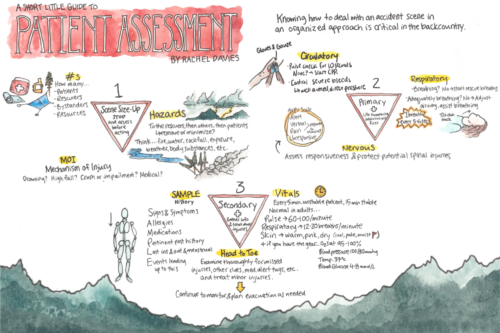 A SHORT LITTLE GUIDE TO
PATIENT ASSESSMENT
BY RACHEL DAVIES
Knowing how to deal with an accident scene in
an organized approach is critical in the backcountry.
#'s
How many...
- Patients
- Rescuers
- Bystanders
- Resources
1
Scene Size-Up
STOP
and assess
before
acting
Hazards
To the rescuer, then others, then patients
Lessened or minimize?
Think... Fire, water, rockfall, exposure,
weather, body substances, etc.
MOI
Mechanism of Injury
Drowning? High fall? Crash or impairment? Medical?
Gloves & Gauze
Circulatory
Pulse check for 10 seconds
None? → Start CPR
Control severe bleeds
2
Primary
Respiratory
- Breathing? No → start rescue breaths
- Adequately breathing? No → Adjust
airway, assist breathing
AVPU Scale
Alert
Verbal
Pain
Unresponsive
Nervous
Assess responsiveness & protect potential spinal injuries
SAMPLE
History
Signs & Symptoms
Allergies
Medications
Pertinent past history
Last ins and outs & menstrual
Events leading
up to this
3
Secondary
Head to Toe
Examine thoroughly for missed
injuries, other clues, med alert tags, etc.
and treat minor injuries.
Vitals
Every 5 min unstable patient, 15 min stable
Normal in adults...
Pulse → 60-100/minute
Respiratory → 12-20 breaths/minute
Skin → warm, pink, dry
+ if you have the gear...
Continue to monitor & plan evacuation as needed